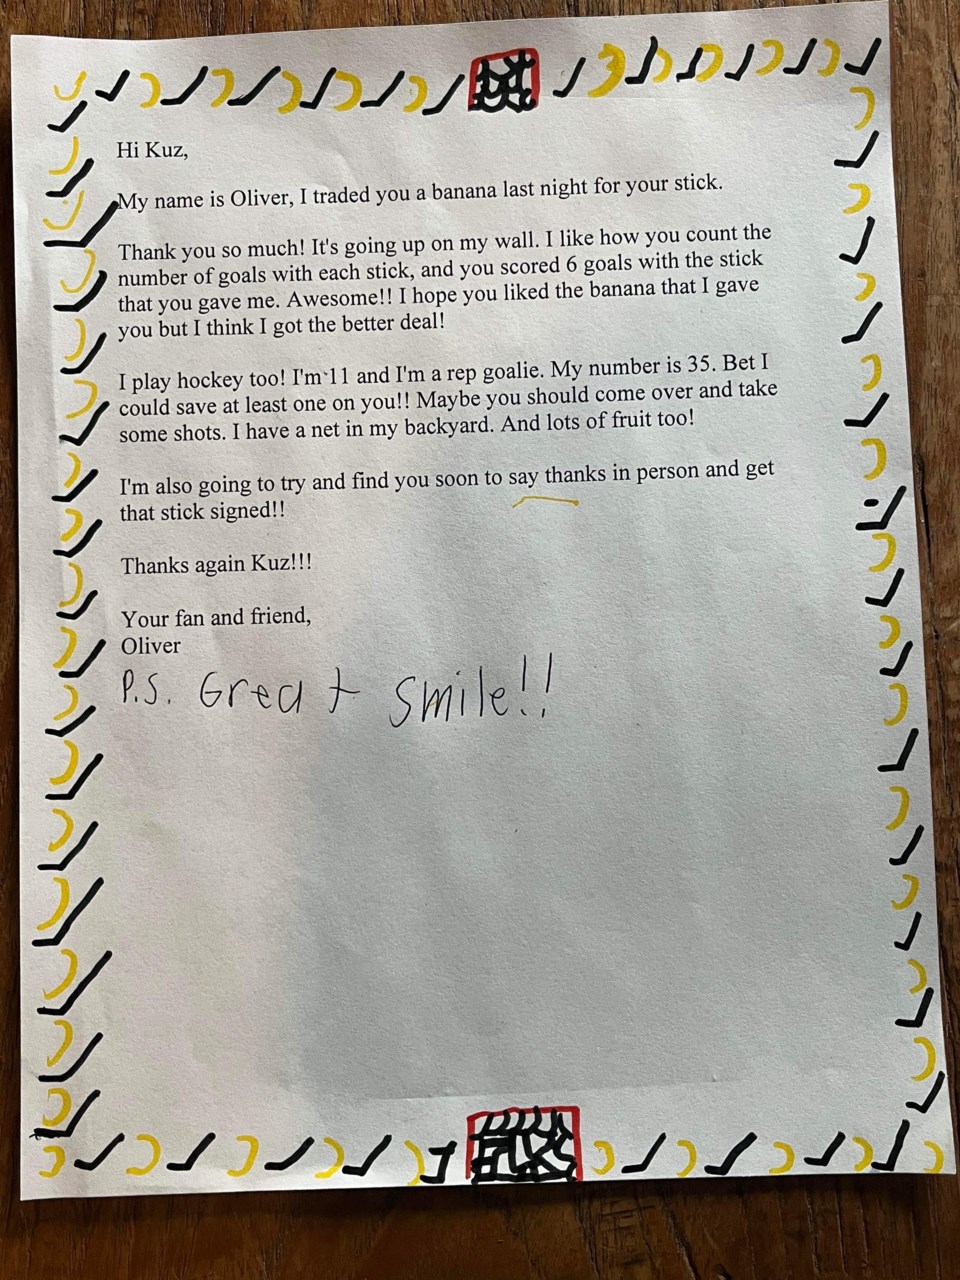 Hi Kuz,
My name is Oliver, I traded you a banana last night for your stick.
Thank you so much! It's going up on my wall. I like how you count the
number of goals with each stick, and you scored 6 goals with the stick
that you gave me. Awesome!! I hope you liked the banana that I gave
you but I think I got the better deal!
I play hockey too! I'm 11 and I'm a rep goalie. My number is 35. Bet I
could save at least one on you!! Maybe you should come over and take
some shots. I have a net in my backyard. And lots of fruit too!
I'm also going to try and find you soon to say thanks in person and get
that stick signed!!
Thanks again Kuz!!!
Your fan and friend,
Oliver
P.S. Great smile!!